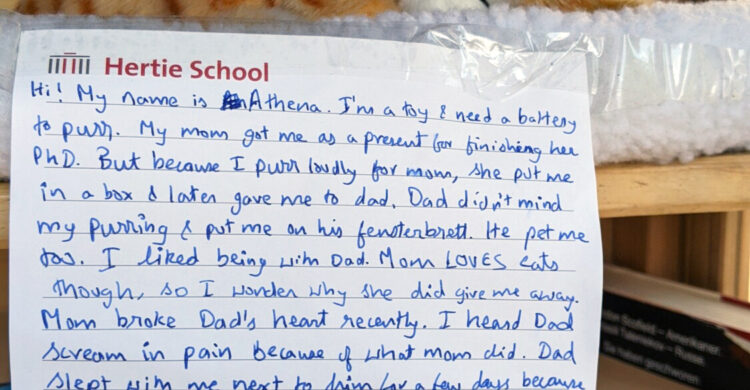 Hertie School
Hi! My name is Athena. I'm a toy & need a battery
to purr. My mom got me as a present for finishing her
PhD. But because I purr loudly for mom, she put me
in a box & later gave me to dad. Dad didn't mind
my purring & put me on his fensterbrett. He pet me
too. I liked being with Dad. Mom LOVES cats
though, so I wonder why she did give me away.
Mom broke Dad's heart recently. I heard Dad
scream in pain because of what mom did. Dad
slept with me next to him for a few days because